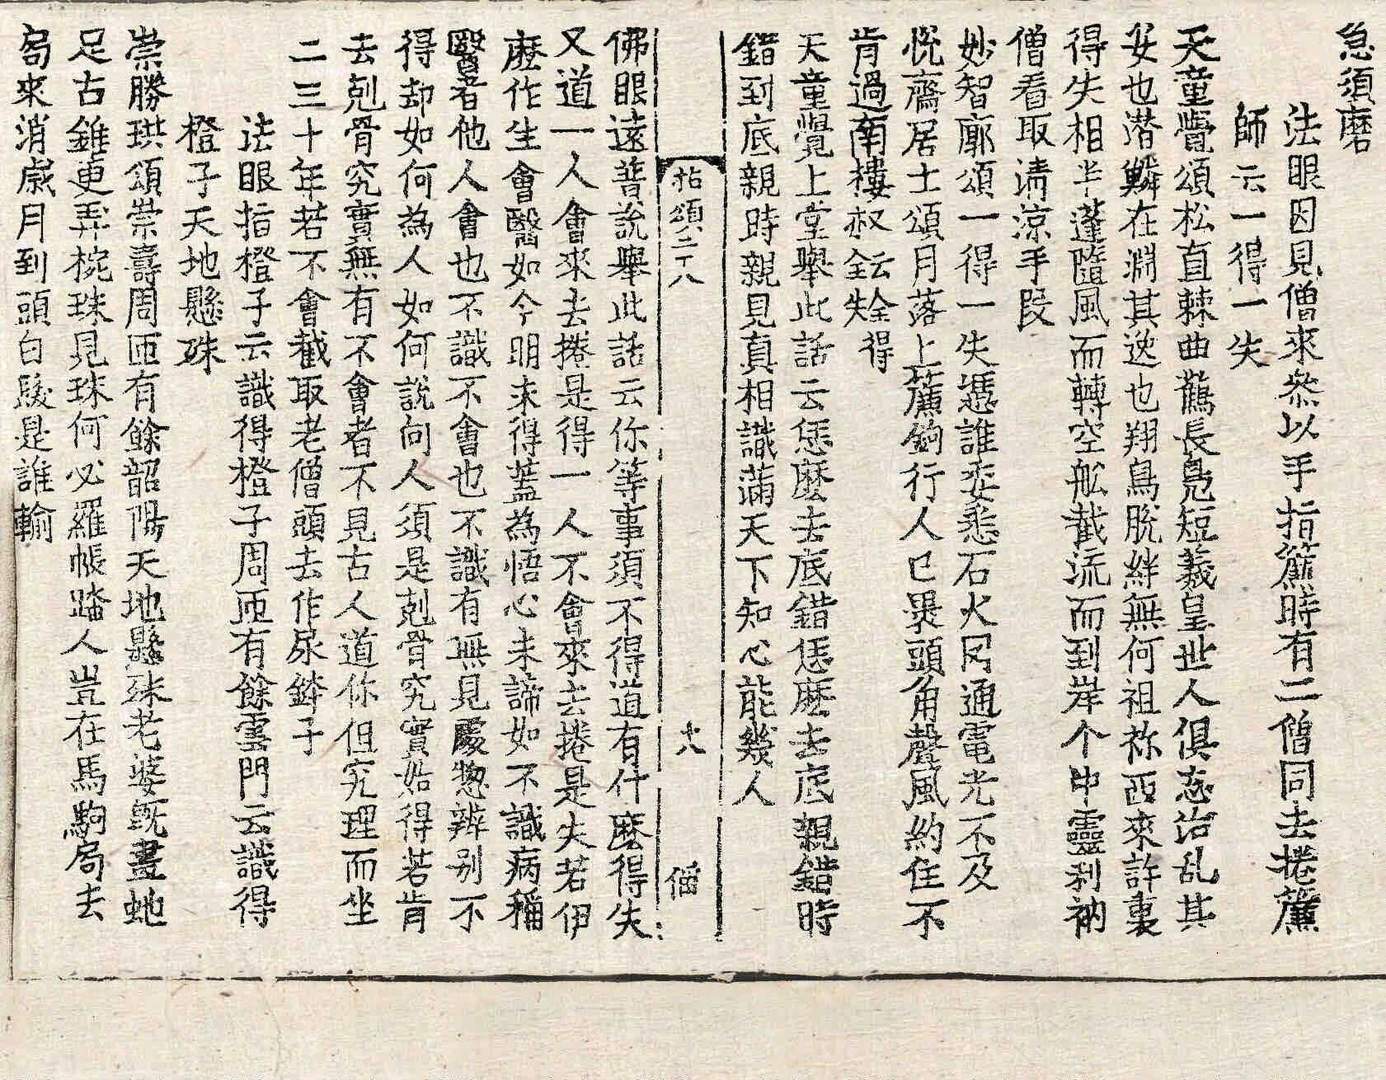 急須磨
法眼因見僧來叅以手指簾時有二僧同去捲簾
師云一得一失
天童覺頌松直棘曲鶴長鳧短羲皇世人俱忘治乱其
安也潜鱗在淵其逸也翔鳥脫絆無何祖祢西來許裏
得失相半蓬隨風而轉空舩截流而到岸个中靈利衲
僧看取清涼手段
妙智廓頌一得一失憑誰委悉石火罔通電光不及
悅齋居士頌月落上簾鉤行人已畏頭角聲風約住不
肯過南樓叔云全得全失
天童覺上堂舉此話云恁麽去底錯恁麽去底親錯時
錯到底親時親見真相識滿天下知心能幾人
拈頌二十八
十八
佛眼遠普說舉此話云你等事須不得道有什麽得失
又道一人會來去捲是得一人不會來去捲是失若伊
麽作生會醫如今明未得蓋為悟心未諦如不識病稱
醫者他人會也不識不會也不識有無見處惣辨别不
得却如何為人如何說向人須是剋骨究實始得若肯
去剋骨究實無有不會者不見古人道你但究理而坐
二三十年若不會截取老僧頭去作尿鉢子
法眼指橙子云識得橙子周匝有餘雲門云識得
橙子天地懸殊
崇勝珙頌崇壽周匝有餘韶陽天地懸殊老婆旣畫虵
足古錐更弄椀珠見珠何必羅帳踏人豈在馬駒局去
局來消歲月到頭白髮是誰輸